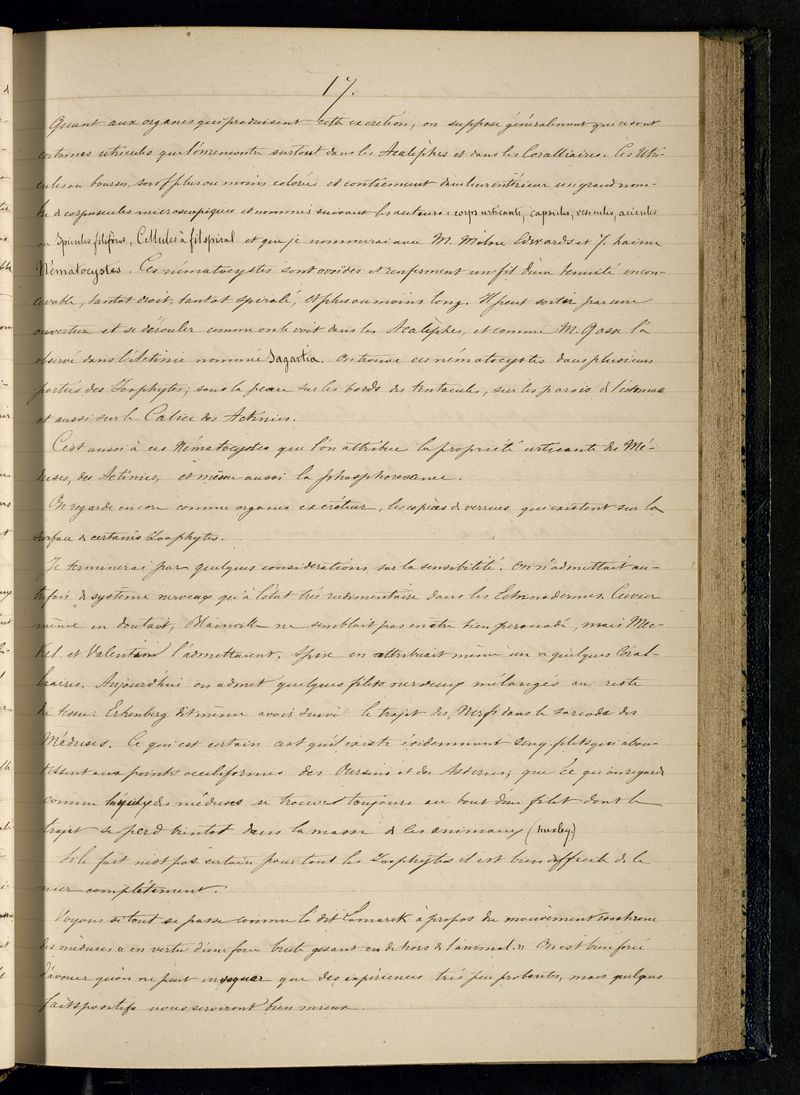 17.
Quant aux organes qui produisent cette excrétion, on suppose généralement que ce sont
certaines utricules que l'on remontre surtout dans les Acalèphes et dans les Coralliaires. Ces Utri-
cules ou bourses, sont plus ou moins colorées et contiennent dans leur intérieur un grand nom-
bre de corpuscules microscopiques et nommés suivant les auteurs: corps urticants, capsules, vésicules, acicules
ou Spicules filifères, Cellules à fil spiral et que je nommerai avec M. Milne Edwards et J. haime
Nématocystes. Ces nématocystes sont ovoïdes et renferment un fil d'une tenuité incon-
cevable, tantot droit, tantot spiralé, et plus ou moins long. Il peut sortir par une
ouverture et se dérouler comme on le voit dans les Acalèphes, et comme M. Gosse l'a
observé dans l'Actinie nommée Sagartia. On trouve ces nématocystes dans plusieurs
parties des Zoophytes; sous la peau sur les bords des tentacules, sur les parois de l'estomac
et aussi sur le Calice des Actinies.
C'est aussi à ces Nématocystes que l'on attribue la propriété urticante des Mé-
duses, des Actinies, et même aussi la phosphorescence.
On regarde encore comme organes excréteur, les espèces de verrues qui existent sur la
surface de certains Zoophytes.
Je terminerai par quelques considerations sur la sensibilité. On n'admettait au-
trefois de système nerveux qu'à l'état très rudimentaire dans les Echinodermes. Cuvier
même en doutait, Blainville ne semblait pas en être bien persuadé, mais Mec-
kel et Valentin l'admettaient. Spix en attribuait même un a quelques Coral-
liaires. Aujourdhui on admet quelques filets nerveux mélangés au reste
du tissu: Erhenberg dit même avoir suivi le trajet des Nerfs dans le sarcode des
Méduses. Ce qui est certain c'est qu'il existe évidemment cinq filets qui abou-
tissent aux points oculiformes des Oursins et des Asteries; que ce qu'on regarde
comme des méduses se trouvent toujours au bout d'un filet dont le
trajet se perd bientot dans la masse de ces animaux (huxley.)
Si le fait n'est pas certain pour tout les Zoophytes il est bien difficile de le
nier complètement.
Voyons si tout se passe comme le dit Lamarck à propos du mouvement isochrone
des méduses « en vertu d'une force brute gisant en dehors de l'animal. » On est bien forcé
d'avouer qu'on ne peut invoquer que des expériences très peu probantes, mais quelques
faits positifs nous serviront bien mieux.